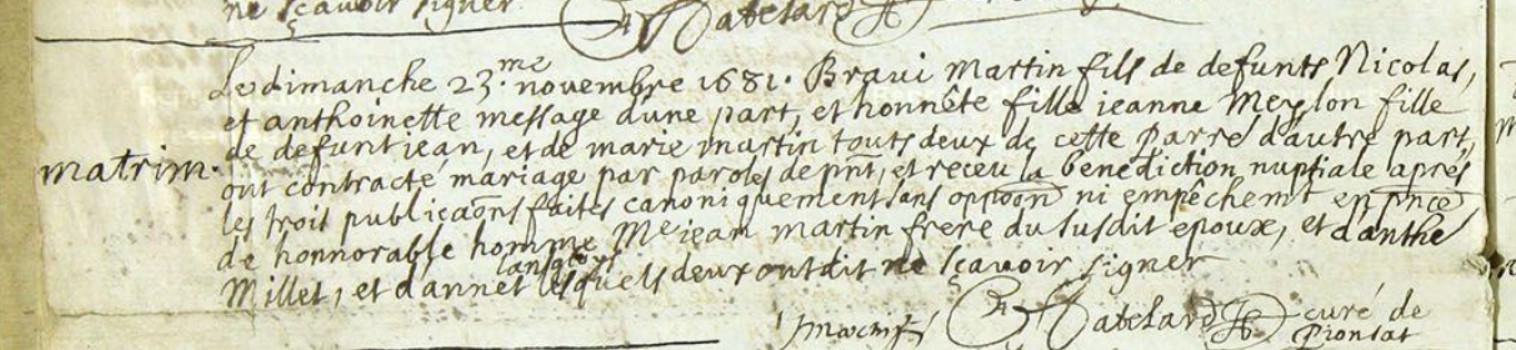 ne sçavoir signer. Batelard
Le dimanche 23.me novembre 1681. Bravi Martin fils de defunts Nicolas,
et anthoinette message d'une part, et honnête fille jeanne Meylon fille
matrim. de defunt jean, et de marie martin touts deux de cette parre d'autre part,
ont contracté mariage par paroles de pnt, et receu la benediction nuptiale aprés
les trois publicaõns faites canoniquement sans oppoõn ni empêchemt en pnce
de honnorable homme Me jean martin frere du susdit epoux, et d'anthe
langlois
Millet, et d'annet lesquels deux ont dit ne sçavoir signer
Batelard curé de
Pionsat